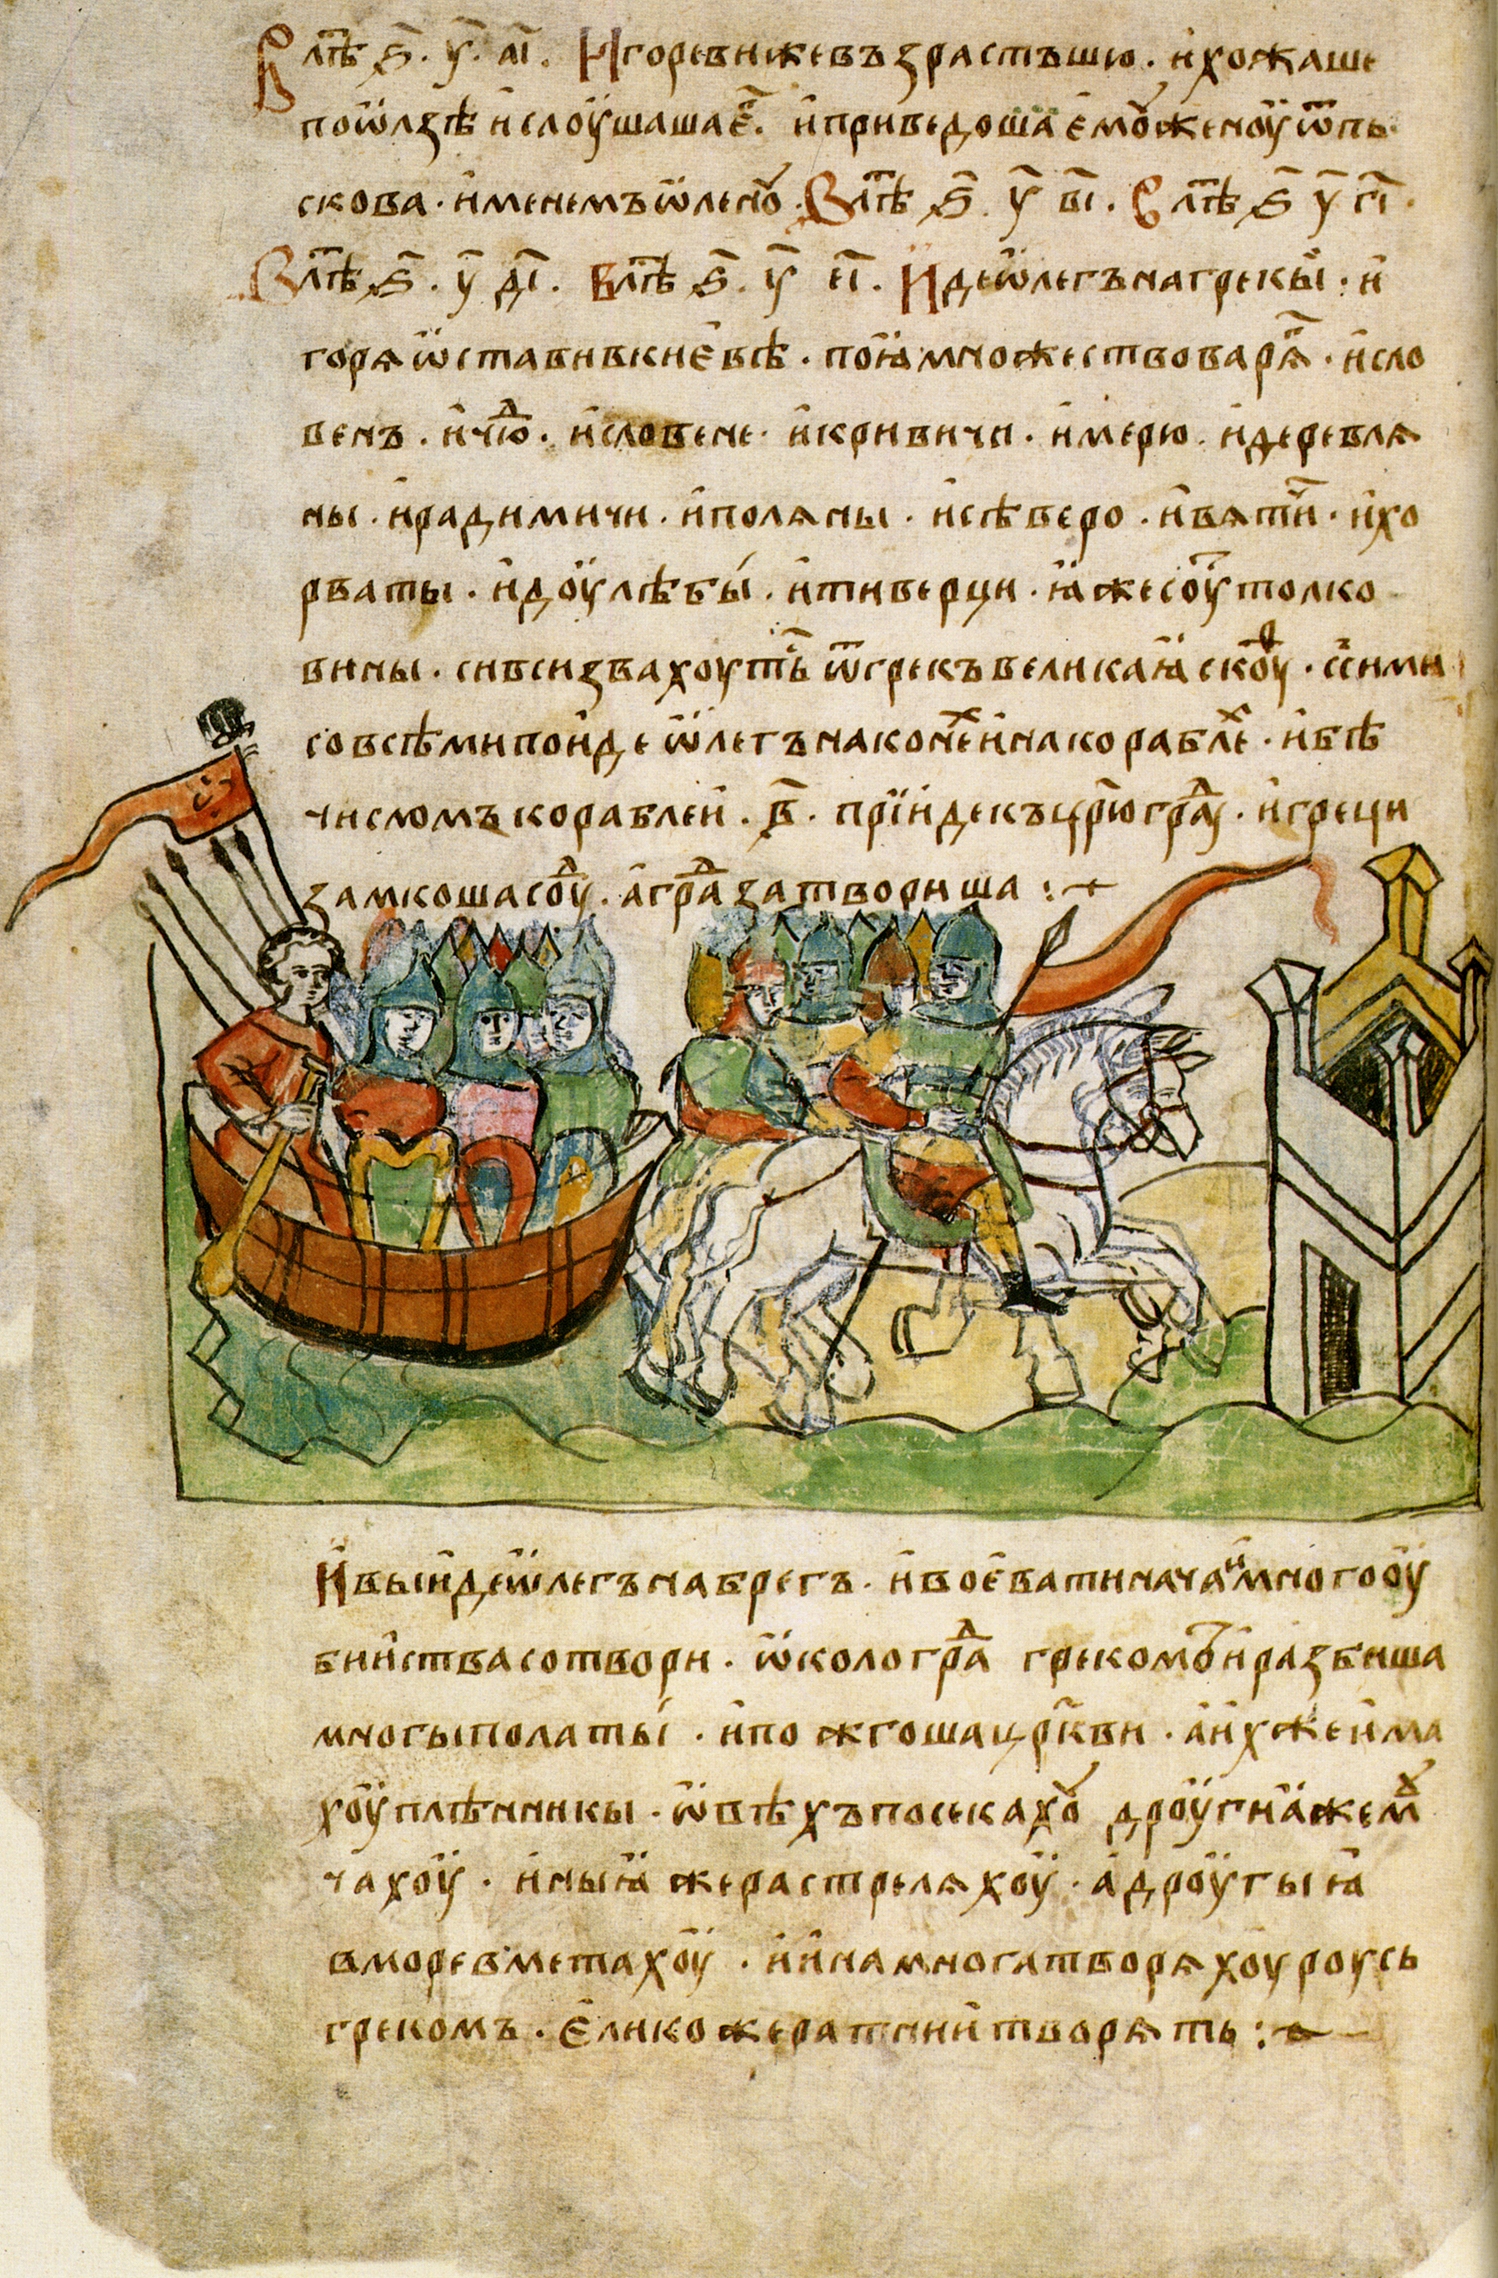 В лѣ҃ ҂ѕ҃ . у҃ . аі҃ . Игореви жевъзрастъшю . и хожаше
по ѿлзѣ и слоушаша е҃ . и приведоша емоу женоу ѿ пь
скова . именемъ ѿленоу . В лѣ҃ ҂ѕ҃ . у҃ ві҃ . В лѣ҃ ҂ѕ҃ у҃ гі҃ .
В лѣ҃ ҂ѕ҃ . у҃ ді҃ . В лѣ҃ ҂ѕ҃ . у҃ еі҃ . Иде ѡлегъ на грекы . и
горя ѡставив киевѣ . поꙗ множество варѧ҃ . и сло
венъ . и чюⷣ . и словене . и кривичи . и мерю . и деревлѧ
ны . и радимичи . и полѧны . и сѣверо . и вѧти҃ . и хо
рваты . и доулѣбы . и тиверци . ꙗже соуⷮ толко
вины . си вси звахоутьⷭ ѿ грекъ великаꙗ скоуⷴ . с сими
со всѣми поиде ѡлегъ на конеⷯ и на кораблеⷯ . и бѣ
числомъ кораблей . в҃ . прiиде къ црю҃граⷣу . и греци
замкоша соуⷣ . а граⷣ затвориша :
И выиде ѡлегъ на брегъ . и воевати начаⷩ и много оу
бииства сотвори . ѡколо граⷣа грекомъ и разбиша
многы полаты . и пожгоша цр҃кви . а ихже има
хоу плѣнникы . ѡвѣхъ посекахоу дроугиꙗ же моуⷱ
чахоу . иныꙗ же растрелѧхоу . а дроугыꙗ
в море вметахоу . и ина многа творѧхоу роусь
грекомъ . елико же ратнии творѧть :